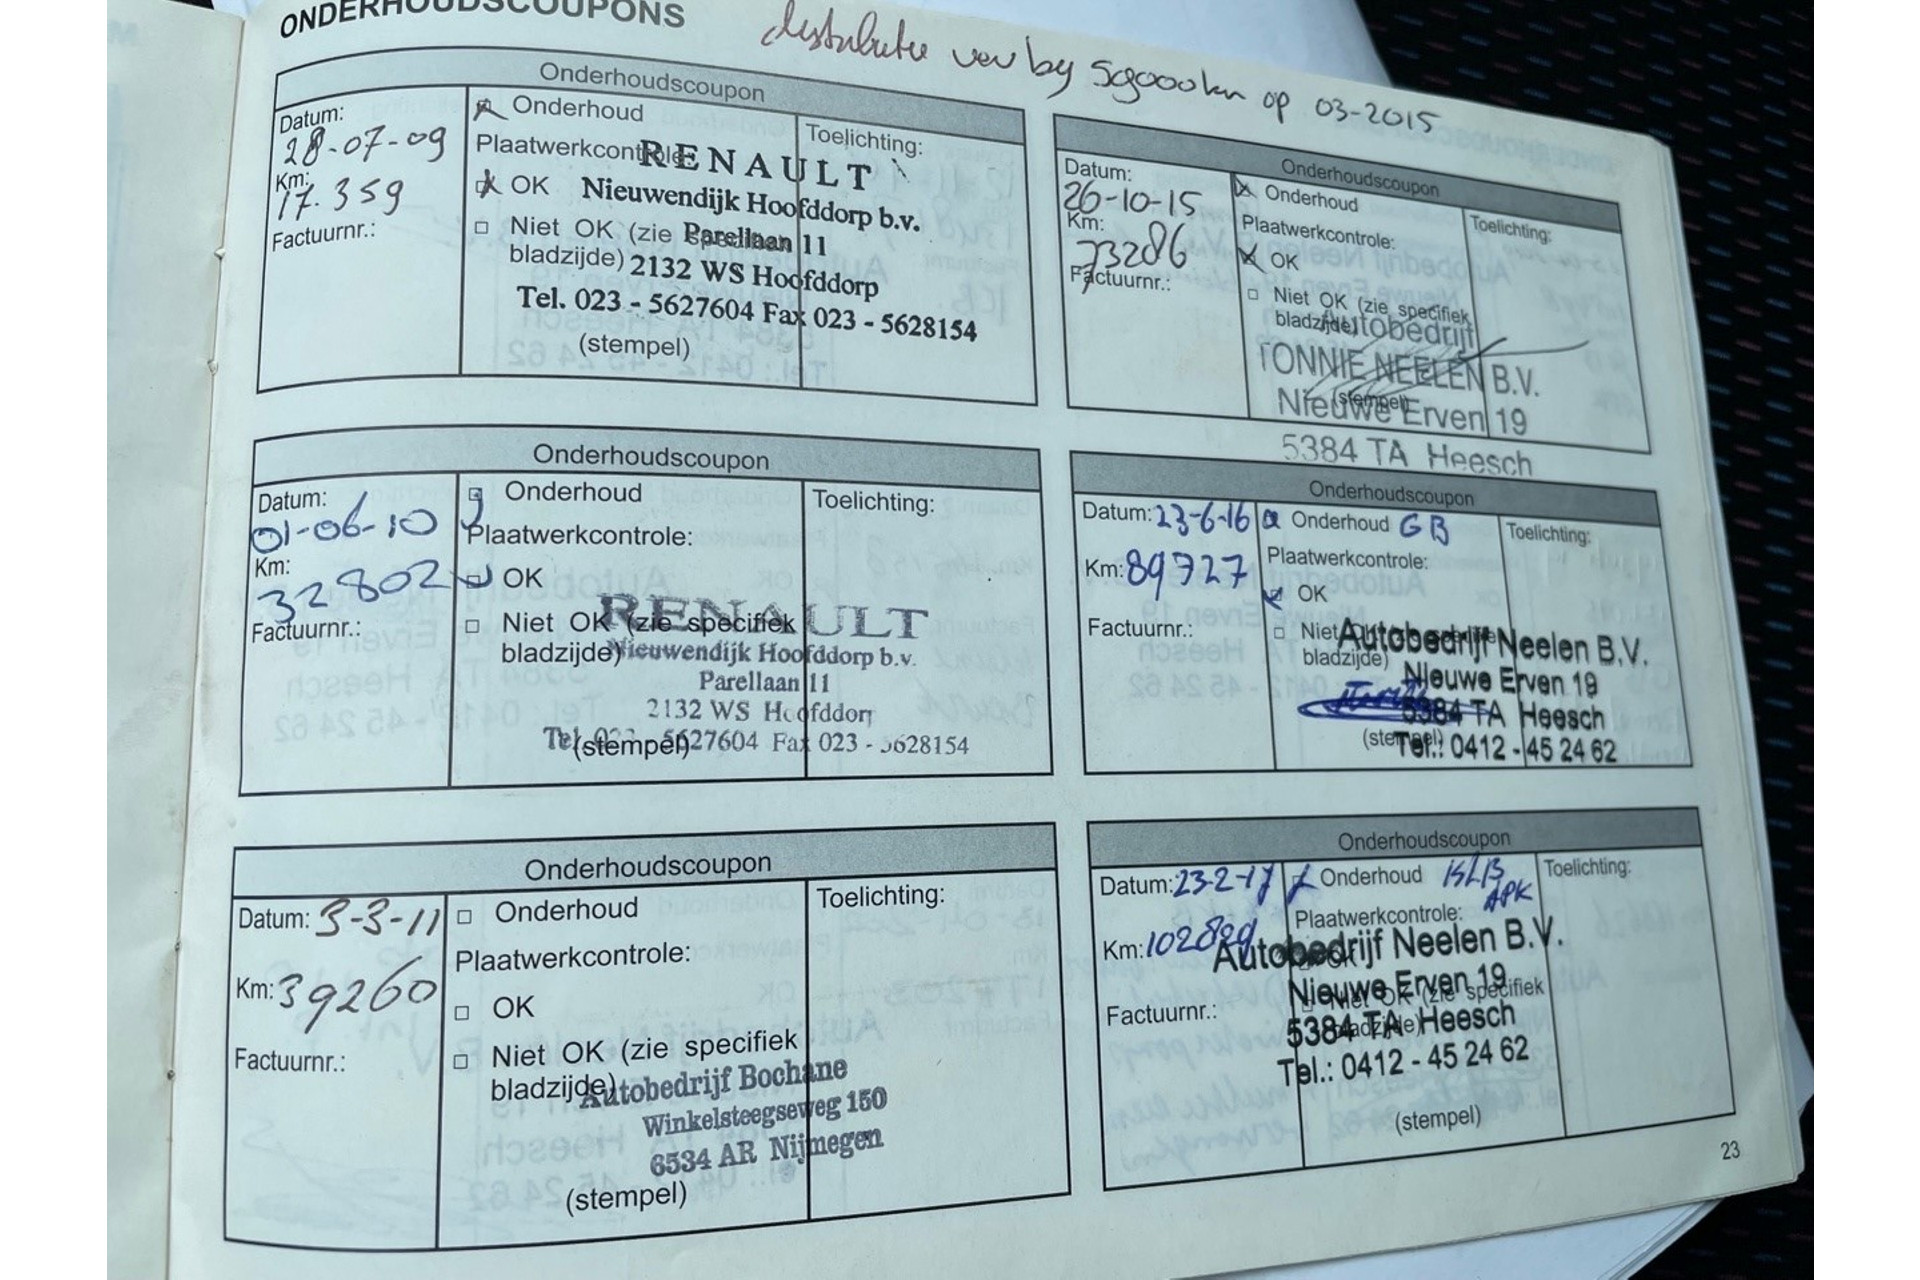 ONDERHOUDSCOUPONS
distributie ver by 59000km op 03-2015
Onderhoudscoupon
Datum:
28-07-09
Km:
17.359
Factuurnr.:
Onderhoud
Plaatwerkcontrole:
OK
Niet OK (zie specifiek
bladzijde)
Toelichting:
RENAULT
Nieuwendijk Hoofddorp b.v.
Parellaan 11
2132 WS Hoofddorp
Tel. 023 - 5627604 Fax 023 - 5628154
(stempel)
Onderhoudscoupon
Datum:
01-06-10
Km:
32802
Factuurnr.:
Onderhoud
Plaatwerkcontrole:
OK
Niet OK (zie specifiek
bladzijde)
Toelichting:
RENAULT
Nieuwendijk Hoofddorp b.v.
Parellaan 11
2132 WS Hoofddorp
Tel. 023 - 5627604 Fax 023 - 5628154
(stempel)
Onderhoudscoupon
Datum: 3-3-11
Km: 39260
Factuurnr.:
Onderhoud
Plaatwerkcontrole:
OK
Niet OK (zie specifiek
bladzijde)
Toelichting:
Autobedrijf Bochane
Winkelsteegseweg 150
6534 AR Nijmegen
(stempel)
Onderhoudscoupon
Datum:
26-10-15
Km:
73286
Factuurnr.:
Onderhoud
Plaatwerkcontrole:
OK
Niet OK (zie specifiek
bladzijde)
Toelichting:
Autobedrijf
TONNIE NEELEN B.V.
(stempel)
Nieuwe Erven 19
5384 TA Heesch
Onderhoudscoupon
Datum: 23-6-16
Km: 89727
Factuurnr.:
Onderhoud GB
Plaatwerkcontrole:
OK
Niet
bladzijde)
Toelichting:
Autobedrijf Neelen B.V.
Nieuwe Erven 19
5384 TA Heesch
(stempel)
Tel.: 0412 - 45 24 62
Onderhoudscoupon
Datum: 23-2-17
Km: 102829
Factuurnr.:
Onderhoud
APK
Plaatwerkcontrole:
OK
Niet OK (zie specifiek
bladzijde)
Toelichting:
Autobedrijf Neelen B.V.
Nieuwe Erven 19
5384 TA Heesch
Tel.: 0412 - 45 24 62
(stempel)
23